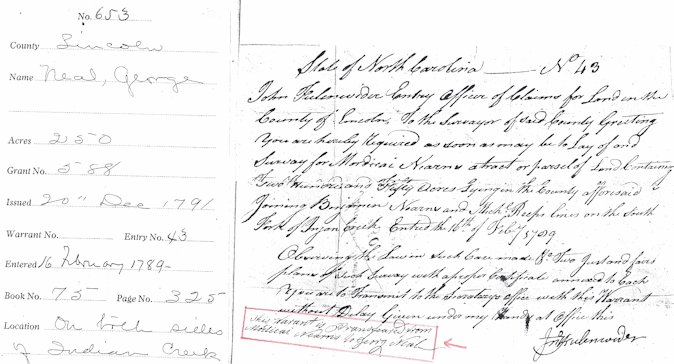 No. 653
County Lincoln
Name Neal, George
Acres 250
Grant No. 588
Issued 20" Dec 1791
Warrant No. Entry No. 43
Entered 16 February 1789-
Book No. 75 Page No. 325
Location On both sides
of Indian Creek
State of North Carolina — No 43
John Fulenwider Entry Officer of Claims for Land in the
County of Lincoln, To the Surveyor of said County Greeting
You are hereby required as soon as may be to Lay of and
Survey for Mordicai Nearns a tract or parsel of Land Containing
Two Hundred and Fifty Acres Lying in the County aforesaid
Joining Benjamin Nearns and Mich. Reeps lines on the South
Fork of Injan Creek Entred the 16th of Feby 1789
Observing the Law in such Case made &c Two Just and fair
plans of Such Survey with a proper Certificate annexed to Each
You are to Transmit to the Secretarys Office with this Warrant
without Delay Given under my Hand at Office this
Jno Fulenwider
this warant is Transfared from
Mordicai Nearns to Georg Neal